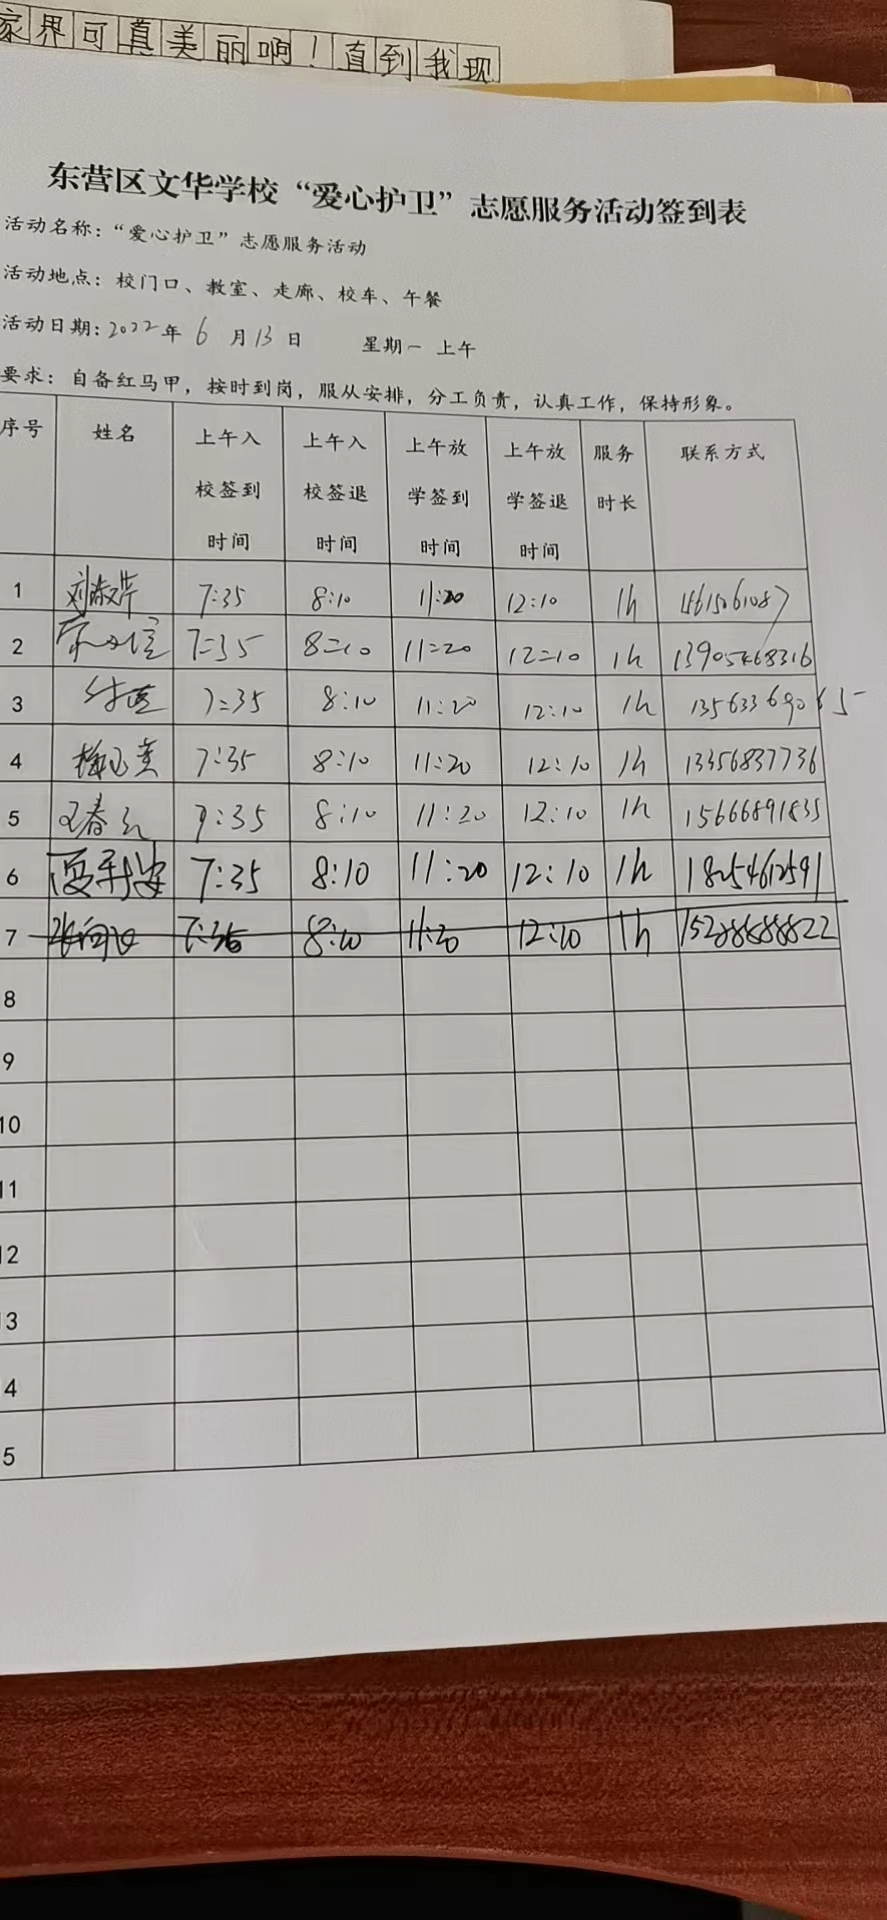 家界可真美丽啊！直到我现
东营区文华学校“爱心护卫”志愿服务活动签到表
活动名称：“爱心护卫”志愿服务活动
活动地点：校门口、教室、走廊、校车、午餐
活动日期：2022年6月13日 星期一 上午
要求：自备红马甲，按时到岗，服从安排，分工负责，认真工作，保持形象。
序号 姓名 上午入校签到时间 上午入校签退时间 上午放学签到时间 上午放学签退时间 服务时长 联系方式
1 刘 7:35 8:10 11:20 12:10 1h
2 7=35 8=10 11=20 12=10 1h 13905468316
3 7:35 8:10 11:20 12:10 1h
4 7:35 8:10 11:20 12:10 1h 13356837736
5 王春 7:35 8:10 11:20 12:10 1h 15666891835
6 7:35 8:10 11:20 12:10 1h 18254612591
7 8:10 11:20 12:10 1h
8
9
10
11
12
3
4
5